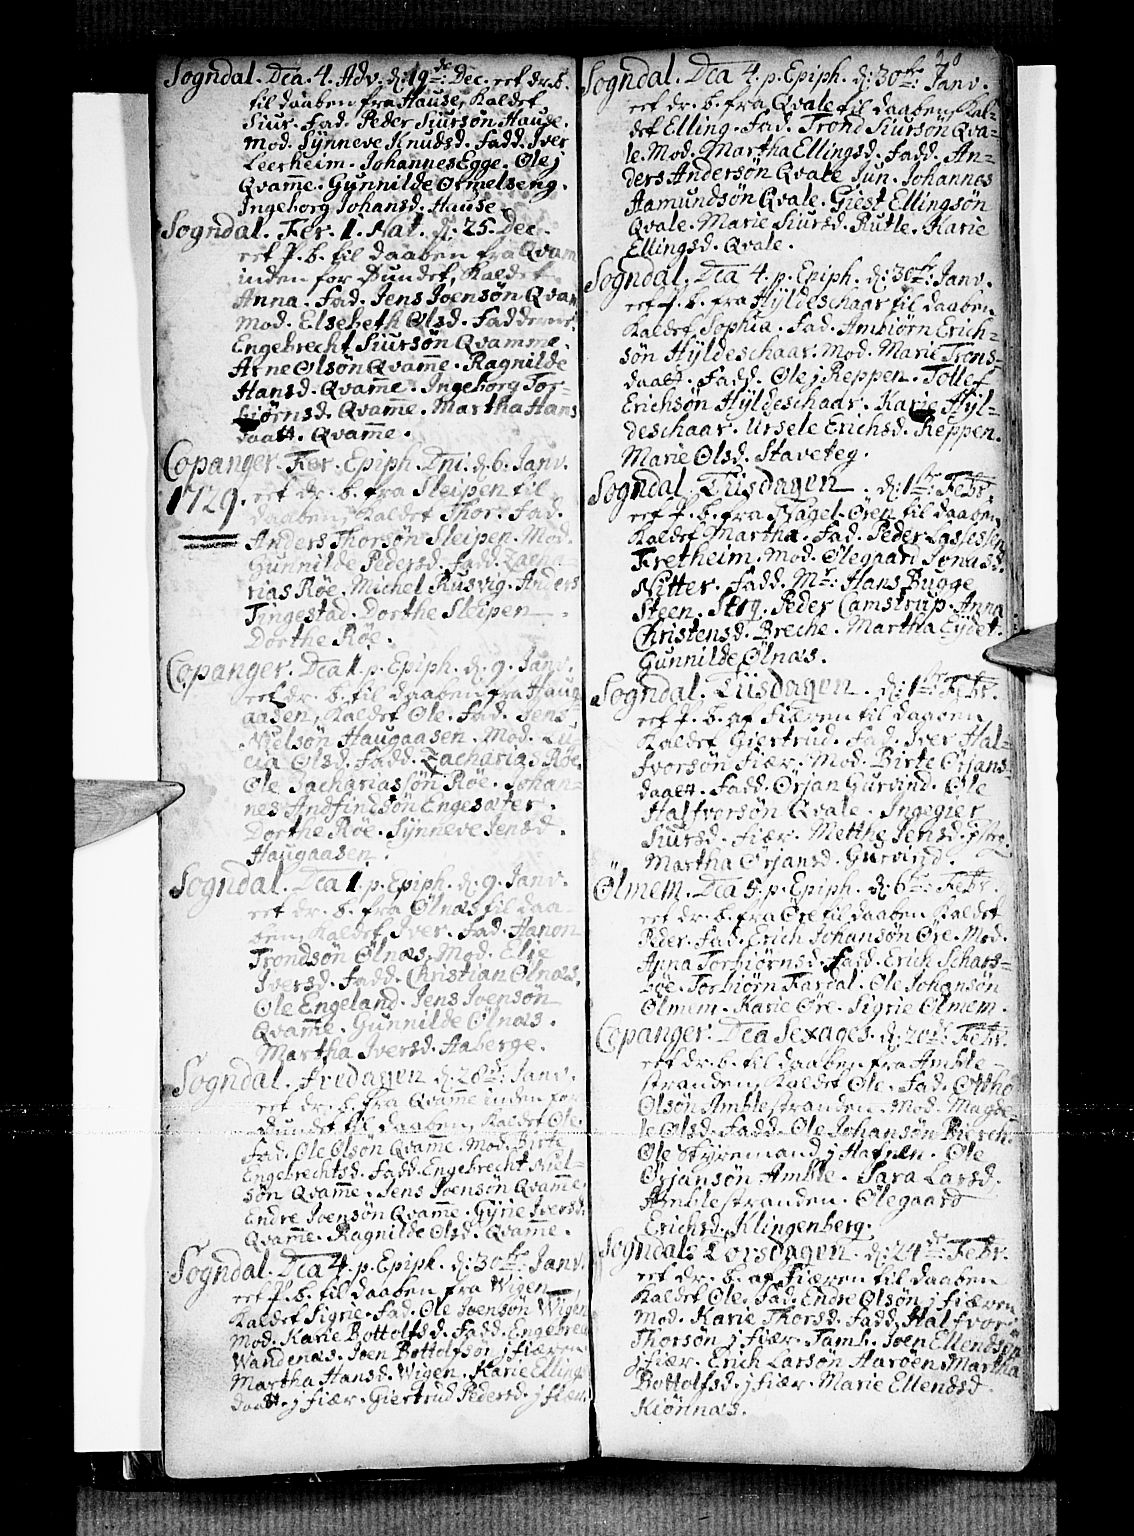 Sogndal. Dca. 4. Adv. d. 19de: Dec. eet dr. b.
til daaben fra Hause, kaldet
Siur. Fad. Peder Siursøn Hause.
Mod. Synneve Knudsd. Fadd. Iver
Leerheim. Johannes Egge. Ole j
Qvam̅e. Gunnilde Ormelseng.
Ingeborg Johansd. Hause.
Sogndal. Fer. 1. Nat. d. 25. Dec.
eet p. b. til daaben fra Qvam
inden for Sundet, kaldet
Anna. Fad. Jens Joensøn Qvam
Mod. Elsebeth Olsd. Faddere
Engebrecht Siursøn Qvamme.
Arne Olsøn Qvam̅e. Ragnilde
Hansd. Qvam̅e. Ingeborg Tor-
biørnsd. Qvam̅e. Martha Hans
daatt. Qvam̅e.
Copanger. Fer. Epiph. Dni. d. 6. Janv.
1729. eet dr. b. fra Sleipen til
daaben, kaldet Thor. Fad.
Anders Thorsøn Sleipen. Mod.
Gunnilde Pedersd. Fadd. Zacha-
rias Røe. Michel Rusvig. Anders
Tingestad. Dorthe Sleipen
Dorthe Røe.
Copanger. Dca 1. p. Epiph. d. 9. Janv.
eet dr. b. til daaben fra Haug
aasen, kaldet Ole. Fad. Jens
Nielsøn Haugaasen. Mod. Lu-
cia Olsd. Fadd. Zacharias Røe
Ole Zachariassøn Røe. Johan-
nes Andfindsøn Engesæter.
Dorthe Røe. Synneve Jensd.
Haugaasen.
Sogndal. Dca 1. p. Epiph. d. 9. Janv.
eet dr. b. fra Ølnæs til daa-
ben, kaldet Iver. Fad. Hanon
Trondsøn Ølnæs. Mod. Else
Iversd. Fadd. Christian Ølnæs.
Ole Engeland. Jens Joensøn
Qvam̅e. Gunnilde Ølnæs.
Martha Iversd. Aaberge.
Sogndal. Fredagen d. 28de: Janv.
eet dr. b. fra Qvam̅e inden for
Sundet til daaben, kaldet Ole.
Fad. Ole Olsøn Qvam̅e. Mod. Birte
Engebrechtsd. Fadd. Engebrecht
søn Qvam̅e. Jens Joensøn Qvam̅e.
Endre Joensøn Qvam̅e. Gyrie Iversd.
Qvam̅e. Ragnilde Olsd. Qvam̅e.
Sogndal. Dca 4. p. Epiph. d. 30te: Janv.
eet p. b. til daaben fra Wigen
kaldet Sigrie. Fad. Ole Joensøn Wigen
Mod. Karie Bottolfsd. Fadd. Engebrect
Wandenæs. Joen Bottolfsøn j fiæren.
Martha Hansd. Wigen. Karie Ellings
daatt. j fiær. Giertrud Pedersd. j fiæ
Sogndal. Dca 4. p. Epiph. d. 30te: Janv.
eet dr. b. fra Qvale til daaben, kal-
det Elling. Fad. Trond Siursøn Qva-
le. Mod. Martha Ellingsd. Fadd. An-
ders Andersøn Qvale Jun. Johannes
Aamundsøn Qvale. Giest Ellingsøn
Qvale. Marie Siursd. Rutle. Karie
Ellingsd. Qvale.
Sogndal. Dca 4. p. Epiph. d. 30te: Janv.
eet p. b. fra Hyldeschaar til daaben
kaldet Sophia. Fad. Ambiørn Erich-
søn Hyldeschaar. Mod. Marie Trons-
daatt. Fadd. Ole j Reppen. Tollef
Erichsøn Hyldeschaar. Karie Hyl-
deschaar. Ursele Erichsd. Reppen.
Marie Olsd. Staveteg.
Sogndal. Tiisdagen d. 1ste: Febr.
eet p. b. fra Nagel-Øren til daaben,
kaldet Martha. Fad. Peder Lassessen
Fretheim. Mod. Olegaard Jonasd.
Nitter. Fadd. Mr. Hans Bugge
Steen. Serg. Peder Camstrup. Anna
Christensd. Breche. Martha Eydet.
Gunnilde Ølnæs.
Sogndal. Tiisdagen. d. 1ste: Febr.
eet p. b. af Fiæren til daaben
kaldet Giertrud. Fad. Iver Hal-
fvorsøn Fiær. Mod. Birte Ørjans-
daatt. Fadd. Ørjan Gurvind. Ole
Halfvorsøn Qvale. Ingegier
Siursd. Fiær. Mette Jensd.
Martha Ørjansd. Gurvind.
Ølmem. Dca 5. p. Epiph. d. 6te: Febr.
eet dr. b. fra Øre til daaben kaldet
Peder. Fad. Erich Johansøn Øre. Mod.
Anna Torbiørnsd. Fadd. Erich Schars-
bøe. Torbiørn Fardal. Ole Johansøn
Ølmem. Karie Øre. Sigrie Ølmem.
Copanger. Dca Sexages. d. 20de: Febr.
eet dr. b. til daaben fra Amble
stranden, kaldet Ole. Fad. Ottho
Olsøn Amblestranden. Mod. Magde-
le Olsd. Fadd. Ole Johansøn Bierch.
Ole Styremand j Hafnen. Ole
Ørjansøn Amble. Sara Larsd.
Amblestranden. Olegaard
Erichsd. Klingenberg.
Sogndal. Torsdagen. d. 24de: Febr.
eet dr. b. af Fiæren til daaben
kaldet Ole. Fad. Endre Olsøn j fiæren
Mod. Karie Thorsd. Fadd. Halfvor
Thorsøn j fiær. Tamb. Joen Ellendsøn
j fiær. Erich Larsøn Harøen. Martha
Bottolfsd. j fiær. Marie Ellendsd
Kiørnæs.